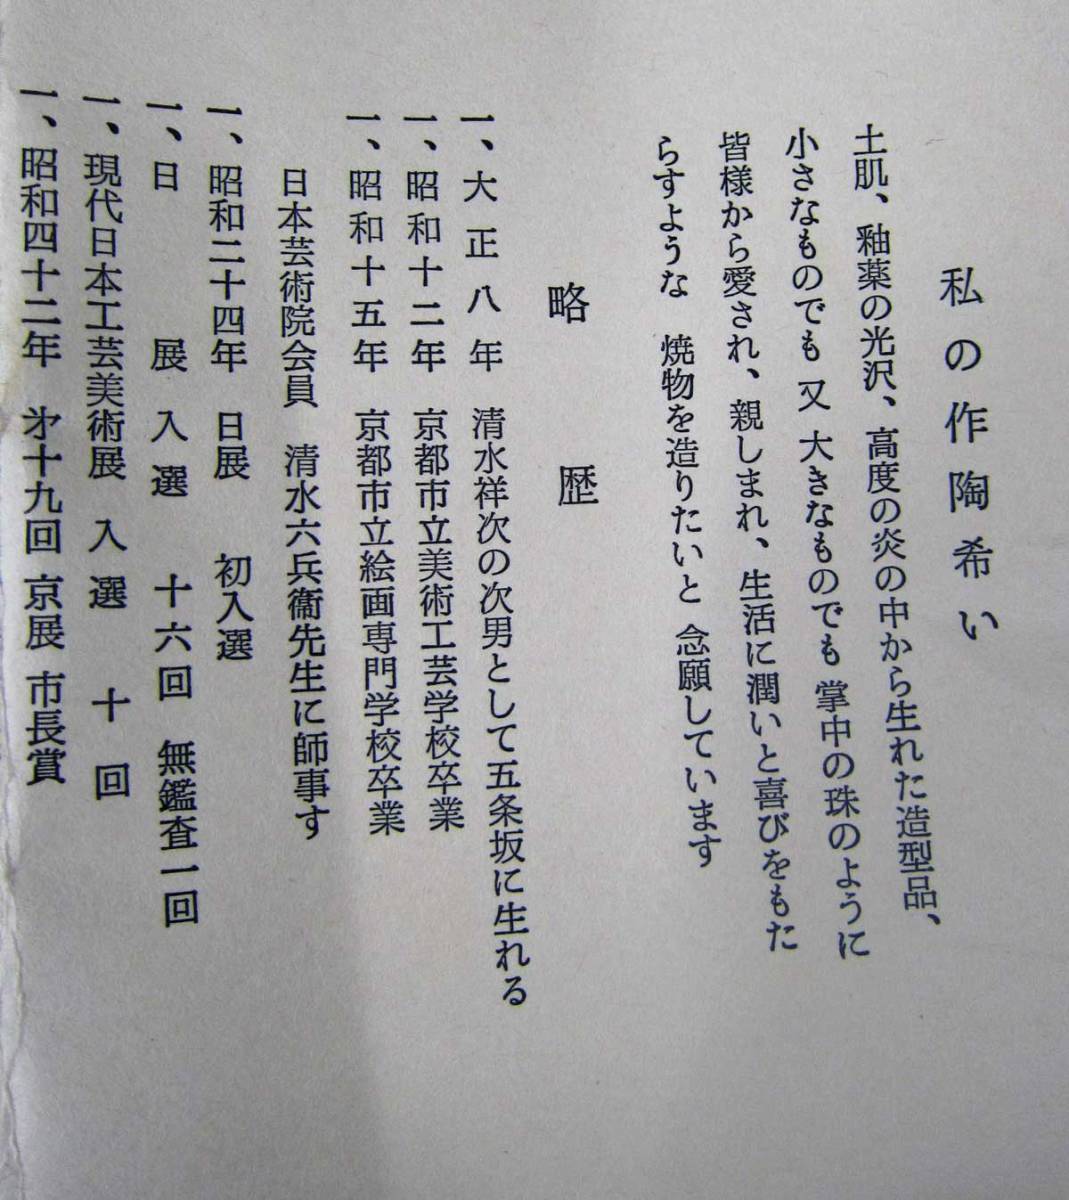 私の作陶希い
土肌、釉薬の光沢、高度の炎の中から生れた造型品、
小さなものでも 又 大きなものでも 掌中の珠のように
皆様から愛され、親しまれ、生活に潤いと喜びをもた
らすような 焼物を造りたいと 念願しています
略歴
一、大正八年 清水祥次の次男として五条坂に生れる
一、昭和十二年 京都市立美術工芸学校卒業
一、昭和十五年 京都市立絵画専門学校卒業
日本芸術院会員 清水六兵衞先生に師事す
一、昭和二十四年 日展 初入選
一、日展入選 十六回 無鑑査一回
一、現代日本工芸美術展 入選 十回
一、昭和四十二年 才十九回 京展 市長賞